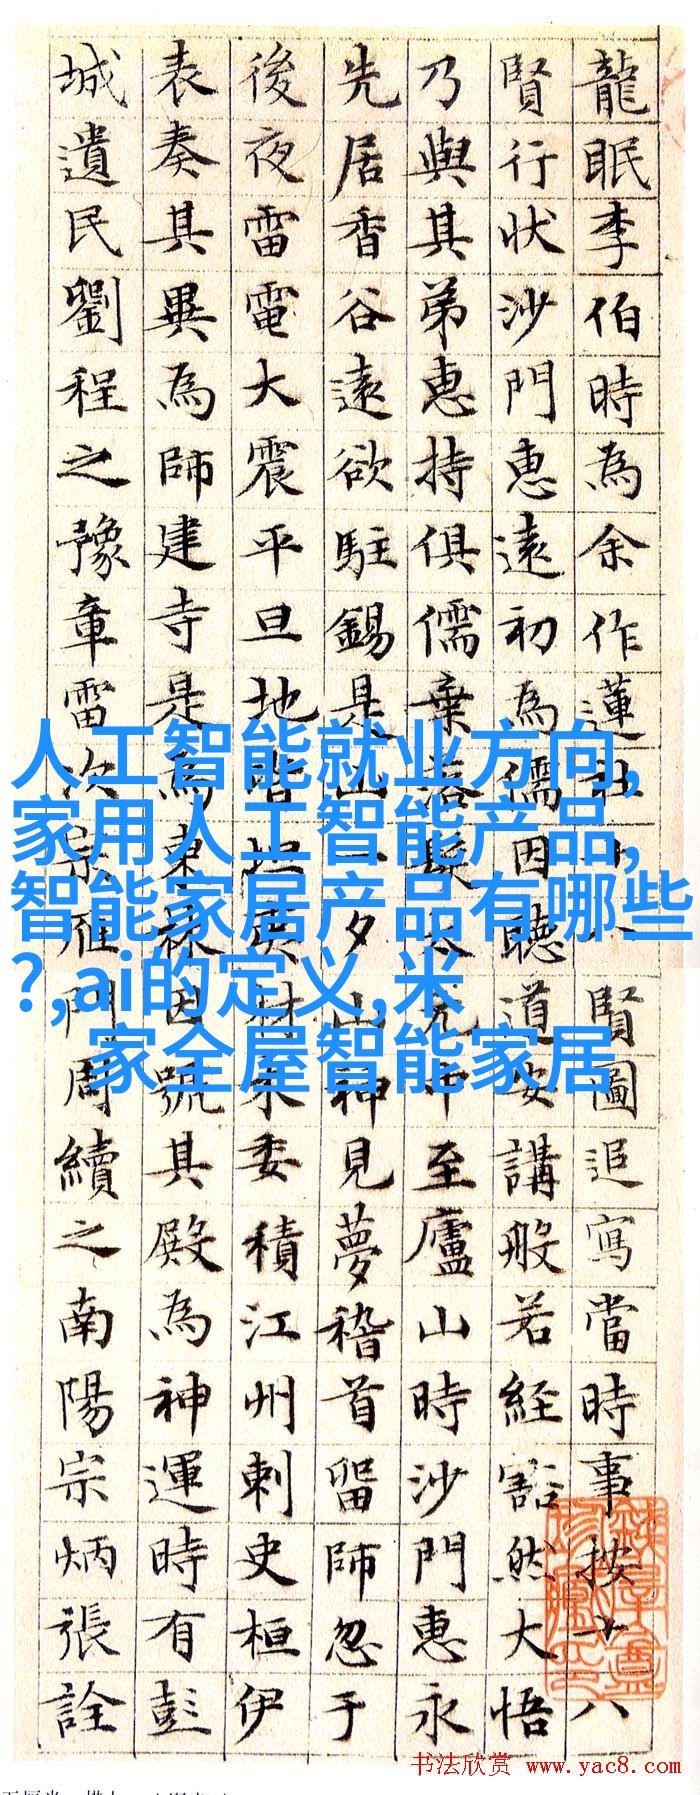 龍眠李伯時為余作蓮社十八賢圖追寫當時事按十八
賢行狀沙門惠遠初為儒因聽道安講般若經豁然大悟
乃與其弟惠持俱儒棄落髮太元中至廬山時沙門惠永
先居香谷遠欲駐錫是山一夕山神見夢稽首留師忽于
後夜雷電大震平旦地皆坦夷材木委積江州刺史桓伊
表奏其異為師建寺是為東林因號其殿為神運時有彭
城遺民劉程之豫章雷次宗雁門周續之南陽宗炳張詮
人工智能就业方向,
家用人工智能产品,
智能家居产品有哪些
?,ai的定义,米
家全屋智能家居
书法欣赏 www.yac8.com